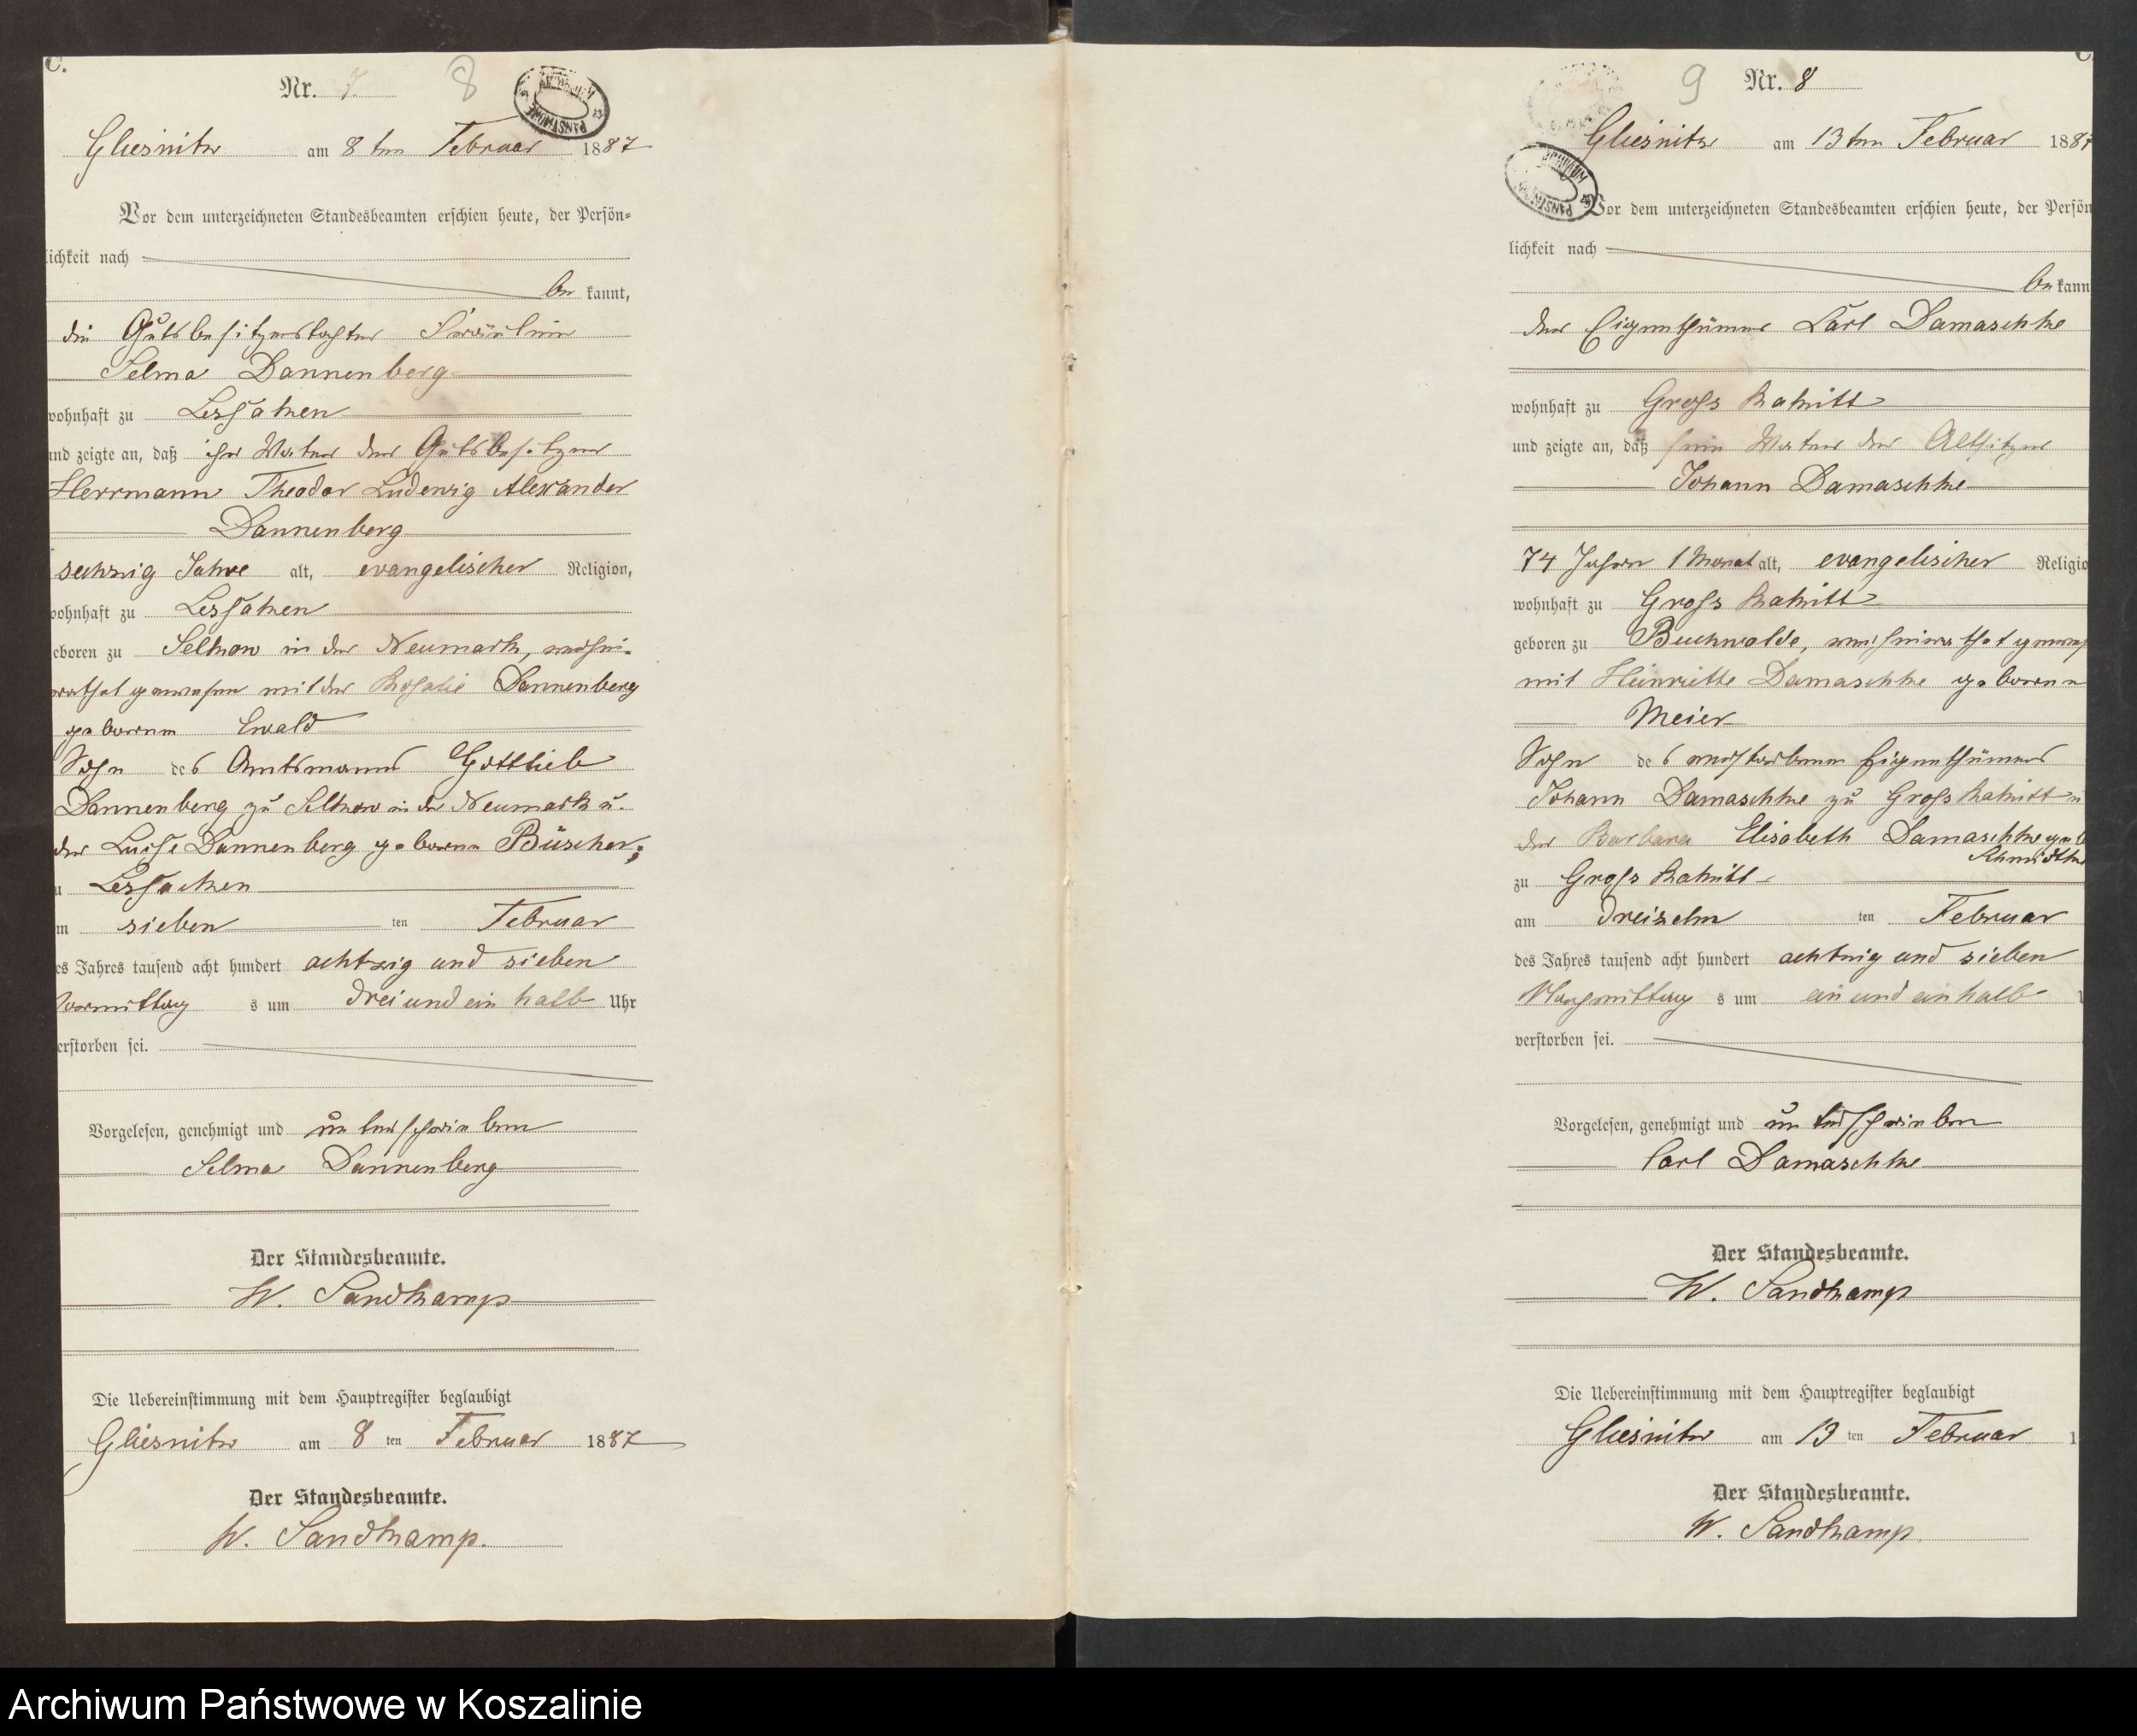 C.
Nr. 7. 8
ARCHIWUM PAŃSTWOWE
Gliesnitz am 8ten Februar 1887
Vor dem unterzeichneten Standesbeamten erschien heute, der Persön=
lichkeit nach
be kannt,
die Gutsbesitzerstochter Fräulein
Selma Dannenberg
wohnhaft zu Lessaken
und zeigte an, daß ihr Vater der Gutsbesitzer
Herrmann Theodor Ludewig Alexander
Dannenberg
sechzig Jahre alt, evangelischer Religion,
wohnhaft zu Lessaken
eboren zu Selchow in der Neumark, verhei-
rathet gewesen mit der Rosalie Dannenberg
geborenen Ewald
Sohn des Amtmanns Gottlieb
Dannenberg zu Selchow in der Neumark u.
der Luise Dannenberg geborene Büscher,
u Lessacken
m sieben ten Februar
es Jahres tausend acht hundert achtzig und sieben
Vormittag s um drei und ein halb Uhr
erstorben sei.
Vorgelesen, genehmigt und unterschrieben
Selma Dannenberg
Der Standesbeamte.
W. Sandkamp
Die Uebereinstimmung mit dem Hauptregister beglaubigt
Gliesnitz am 8 ten Februar 1887
Der Standesbeamte.
W. Sandkamp.
9 Nr. 8
ARCHIWUM PAŃSTWOWE
Gliesnitz am 13ten Februar 1887
Vor dem unterzeichneten Standesbeamten erschien heute, der Persön
lichkeit nach
be kann
der Eigenthümer Carl Damaschke
wohnhaft zu Gross Rakitt
und zeigte an, daß sein Vater der Altsitzer
Johann Damaschke
74 Jahre 1 Monat alt, evangelischer Religio
wohnhaft zu Gross Rakitt
geboren zu Buchwalde, verheirathet gewes
mit Heinriette Damaschke geborene
Meier
Sohn des verstorbenen Eigenthümers
Johann Damaschke zu Gross Rakitt u
der Barbara Elisabeth Damaschke geb
Schmidtke
zu Gross Rakitt
am dreizehn ten Februar
des Jahres tausend acht hundert achtzig und sieben
Nachmittag s um ein und ein halb
verstorben sei.
Vorgelesen, genehmigt und unterschrieben
Carl Damaschke
Der Standesbeamte.
W. Sandkamp
Die Uebereinstimmung mit dem Hauptregister beglaubigt
Gliesnitz am 13 ten Februar 1
Der Standesbeamte.
W. Sandkamp.
Archiwum Państwowe w Koszalinie